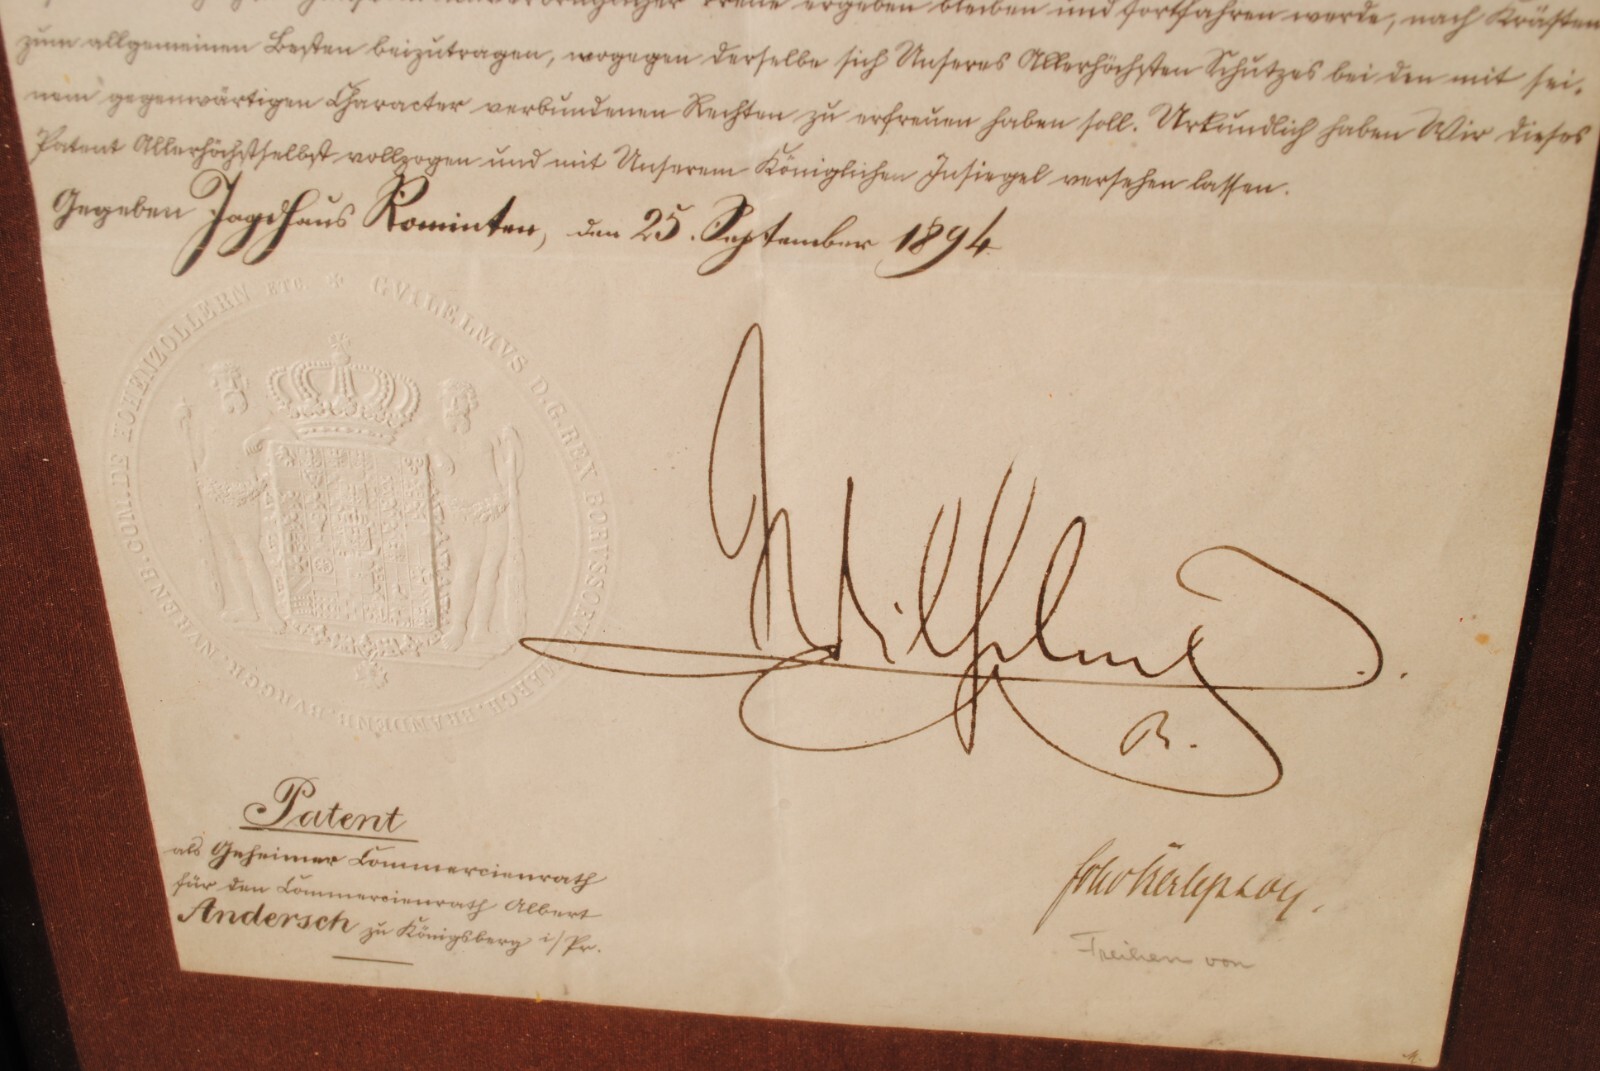 unverbrüchlicher Treue ergeben bleiben und fortfahren werde, nach Kräften
zum allgemeinen Besten beizutragen, wogegen derselbe sich Unseres Allerhöchsten Schutzes bei den mit sei-
nem gegenwärtigen Character verbundenen Rechten zu erfreuen haben soll. Urkundlich haben Wir dieses
Patent Allerhöchstselbst vollzogen und mit Unserem Königlichen Insiegel versehen lassen.
Gegeben Jagdhaus Rominten, den 25. September 1894
GVILELMVS D.G. REX BORVSSORVM MARCH. BRANDENB. BVRGGR. NVRENB. COM. DE HOHENZOLLERN ETC. *
Wilhelm
R.
Patent
als Geheimer Commercienrath
für den Commercienrath Albert
Andersch zu Königsberg i/Pr.
von